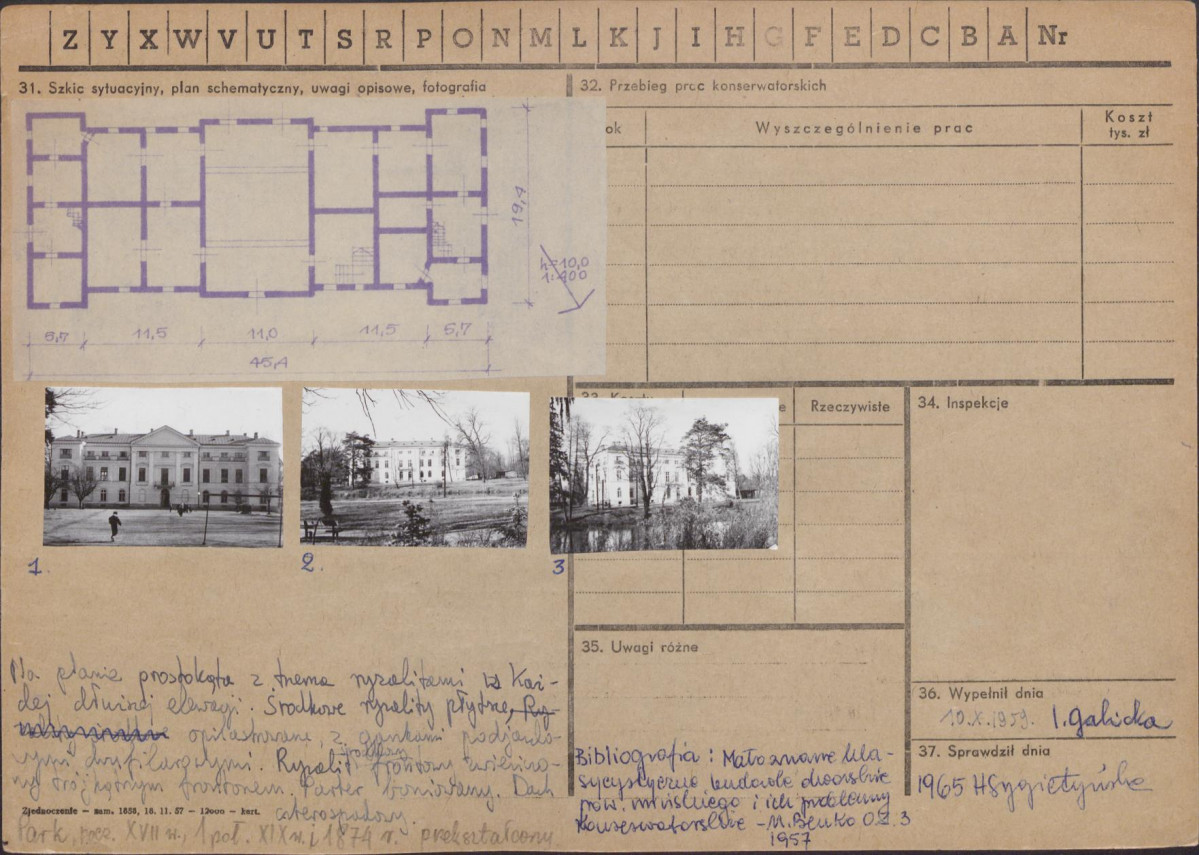 Z Y X W V U T S R P O N M L K J I H G F E D C B A Nr
31. Szkic sytuacyjny, plan schematyczny, uwagi opisowe, fotografia
19,4
h=10,0
1:400
5,7 11,5 11,0 11,5 5,7
45,4
1. 2. 3
Na planie prostokąta z trzema ryzalitami w każ-
dej dłuższej elewacji. Środkowe ryzality płytkie,
opilastrowane, z gankami podjazdo-
wymi
Ryzalit środkowy frontowy zwieńczo-
ny trójkątnym frontonem. Parter boniowany. Dach
czterospadowy.
Zjednoczenie — zam. 1858, 16. 11. 57 — 12000 — kart.
Park, pocz. XVII w., 1 poł. XIX w. i 1874 r. przekształcony.
32. Przebieg prac konserwatorskich
ok Wyszczególnienie prac Koszt
tys. zł
33. Koszty
e Rzeczywiste
34. Inspekcje
35. Uwagi różne
Bibliografia: Mało znane kla-
sycystyczne budowle dworskie
pow. mińskiego i ich problemy
konserwatorskie - M. Benko O.Z. 3
1957
36. Wypełnił dnia
10.X.1959. I. Galicka
37. Sprawdził dnia
1965 H Sygietyńska